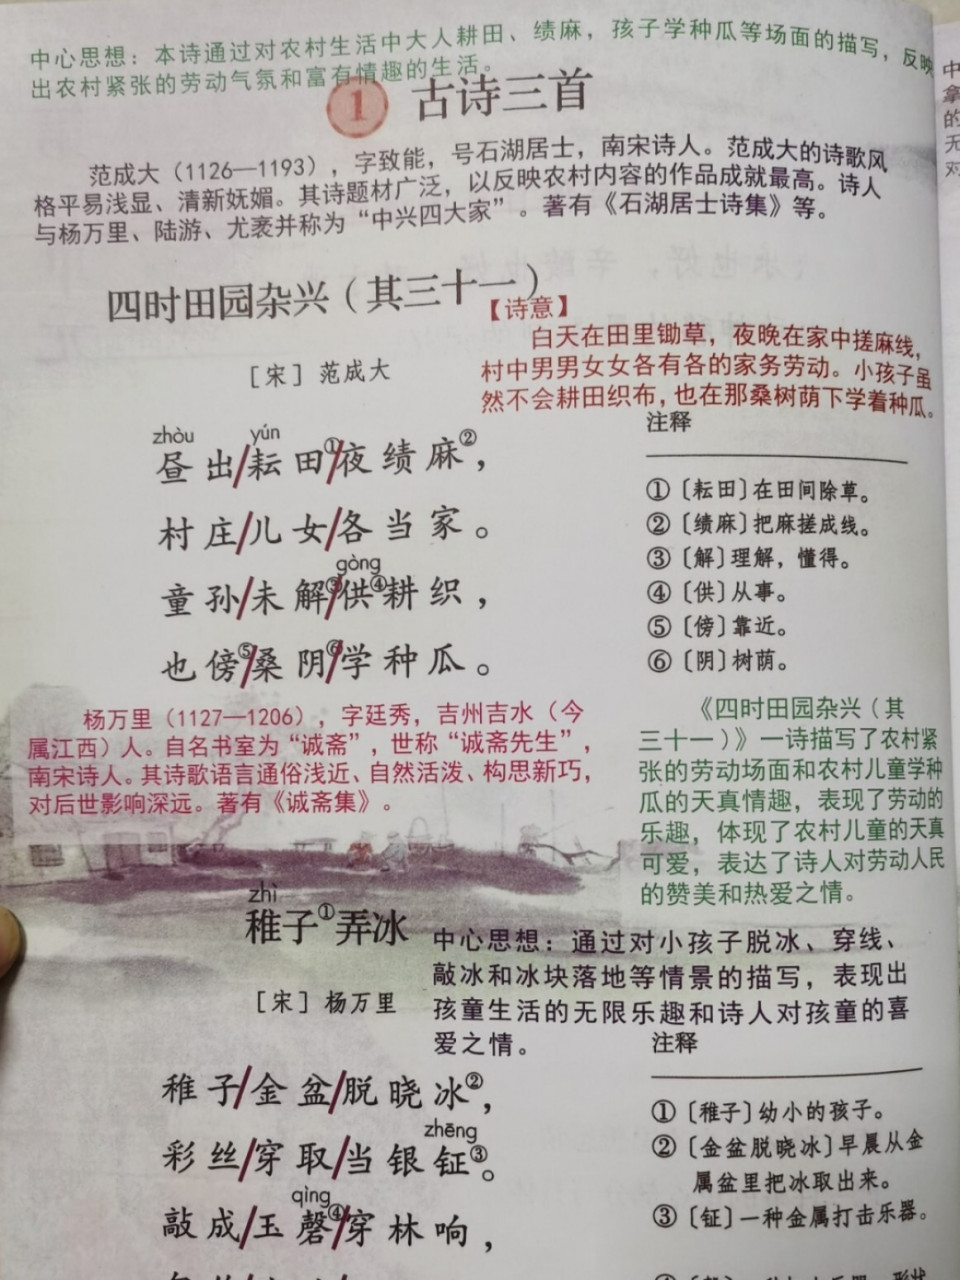 中心思想：本诗通过对农村生活中大人耕田、绩麻，孩子学种瓜等场面的描写，反映
出农村紧张的劳动气氛和富有情趣的生活。
1 古诗三首
范成大（1126—1193），字致能，号石湖居士，南宋诗人。范成大的诗歌风
格平易浅显、清新妩媚。其诗题材广泛，以反映农村内容的作品成就最高。诗人
与杨万里、陆游、尤袤并称为“中兴四大家”。著有《石湖居士诗集》等。
四时田园杂兴（其三十一）
［宋］范成大
【诗意】
白天在田里锄草，夜晚在家中搓麻线，
村中男男女女各有各的家务劳动。小孩子虽
然不会耕田织布，也在那桑树荫下学着种瓜。
zhòu yún
昼出/耘田①/夜绩麻②，
村庄/儿女/各当家。
gòng
童孙/未解③/供④耕织，
也傍⑤/桑阴⑥/学种瓜。
注释
①〔耘田〕在田间除草。
②〔绩麻〕把麻搓成线。
③〔解〕理解，懂得。
④〔供〕从事。
⑤〔傍〕靠近。
⑥〔阴〕树荫。
杨万里（1127—1206），字廷秀，吉州吉水（今
属江西）人。自名书室为“诚斋”，世称“诚斋先生”，
南宋诗人。其诗歌语言通俗浅近、自然活泼、构思新巧，
对后世影响深远。著有《诚斋集》。
《四时田园杂兴（其
三十一）》一诗描写了农村紧
张的劳动场面和农村儿童学种
瓜的天真情趣，表现了劳动的
乐趣，体现了农村儿童的天真
可爱，表达了诗人对劳动人民
的赞美和热爱之情。
zhì
稚子①弄冰
［宋］杨万里
中心思想：通过对小孩子脱冰、穿线、
敲冰和冰块落地等情景的描写，表现出
孩童生活的无限乐趣和诗人对孩童的喜
爱之情。
稚子/金盆/脱晓冰②，
zhēng
彩丝/穿取/当银钲③。
qìng
敲成/玉磬④/穿林响，
注释
①〔稚子〕幼小的孩子。
②〔金盆脱晓冰〕早晨从金
属盆里把冰取出来。
③〔钲〕一种金属打击乐器。
中
拿
的
无
对